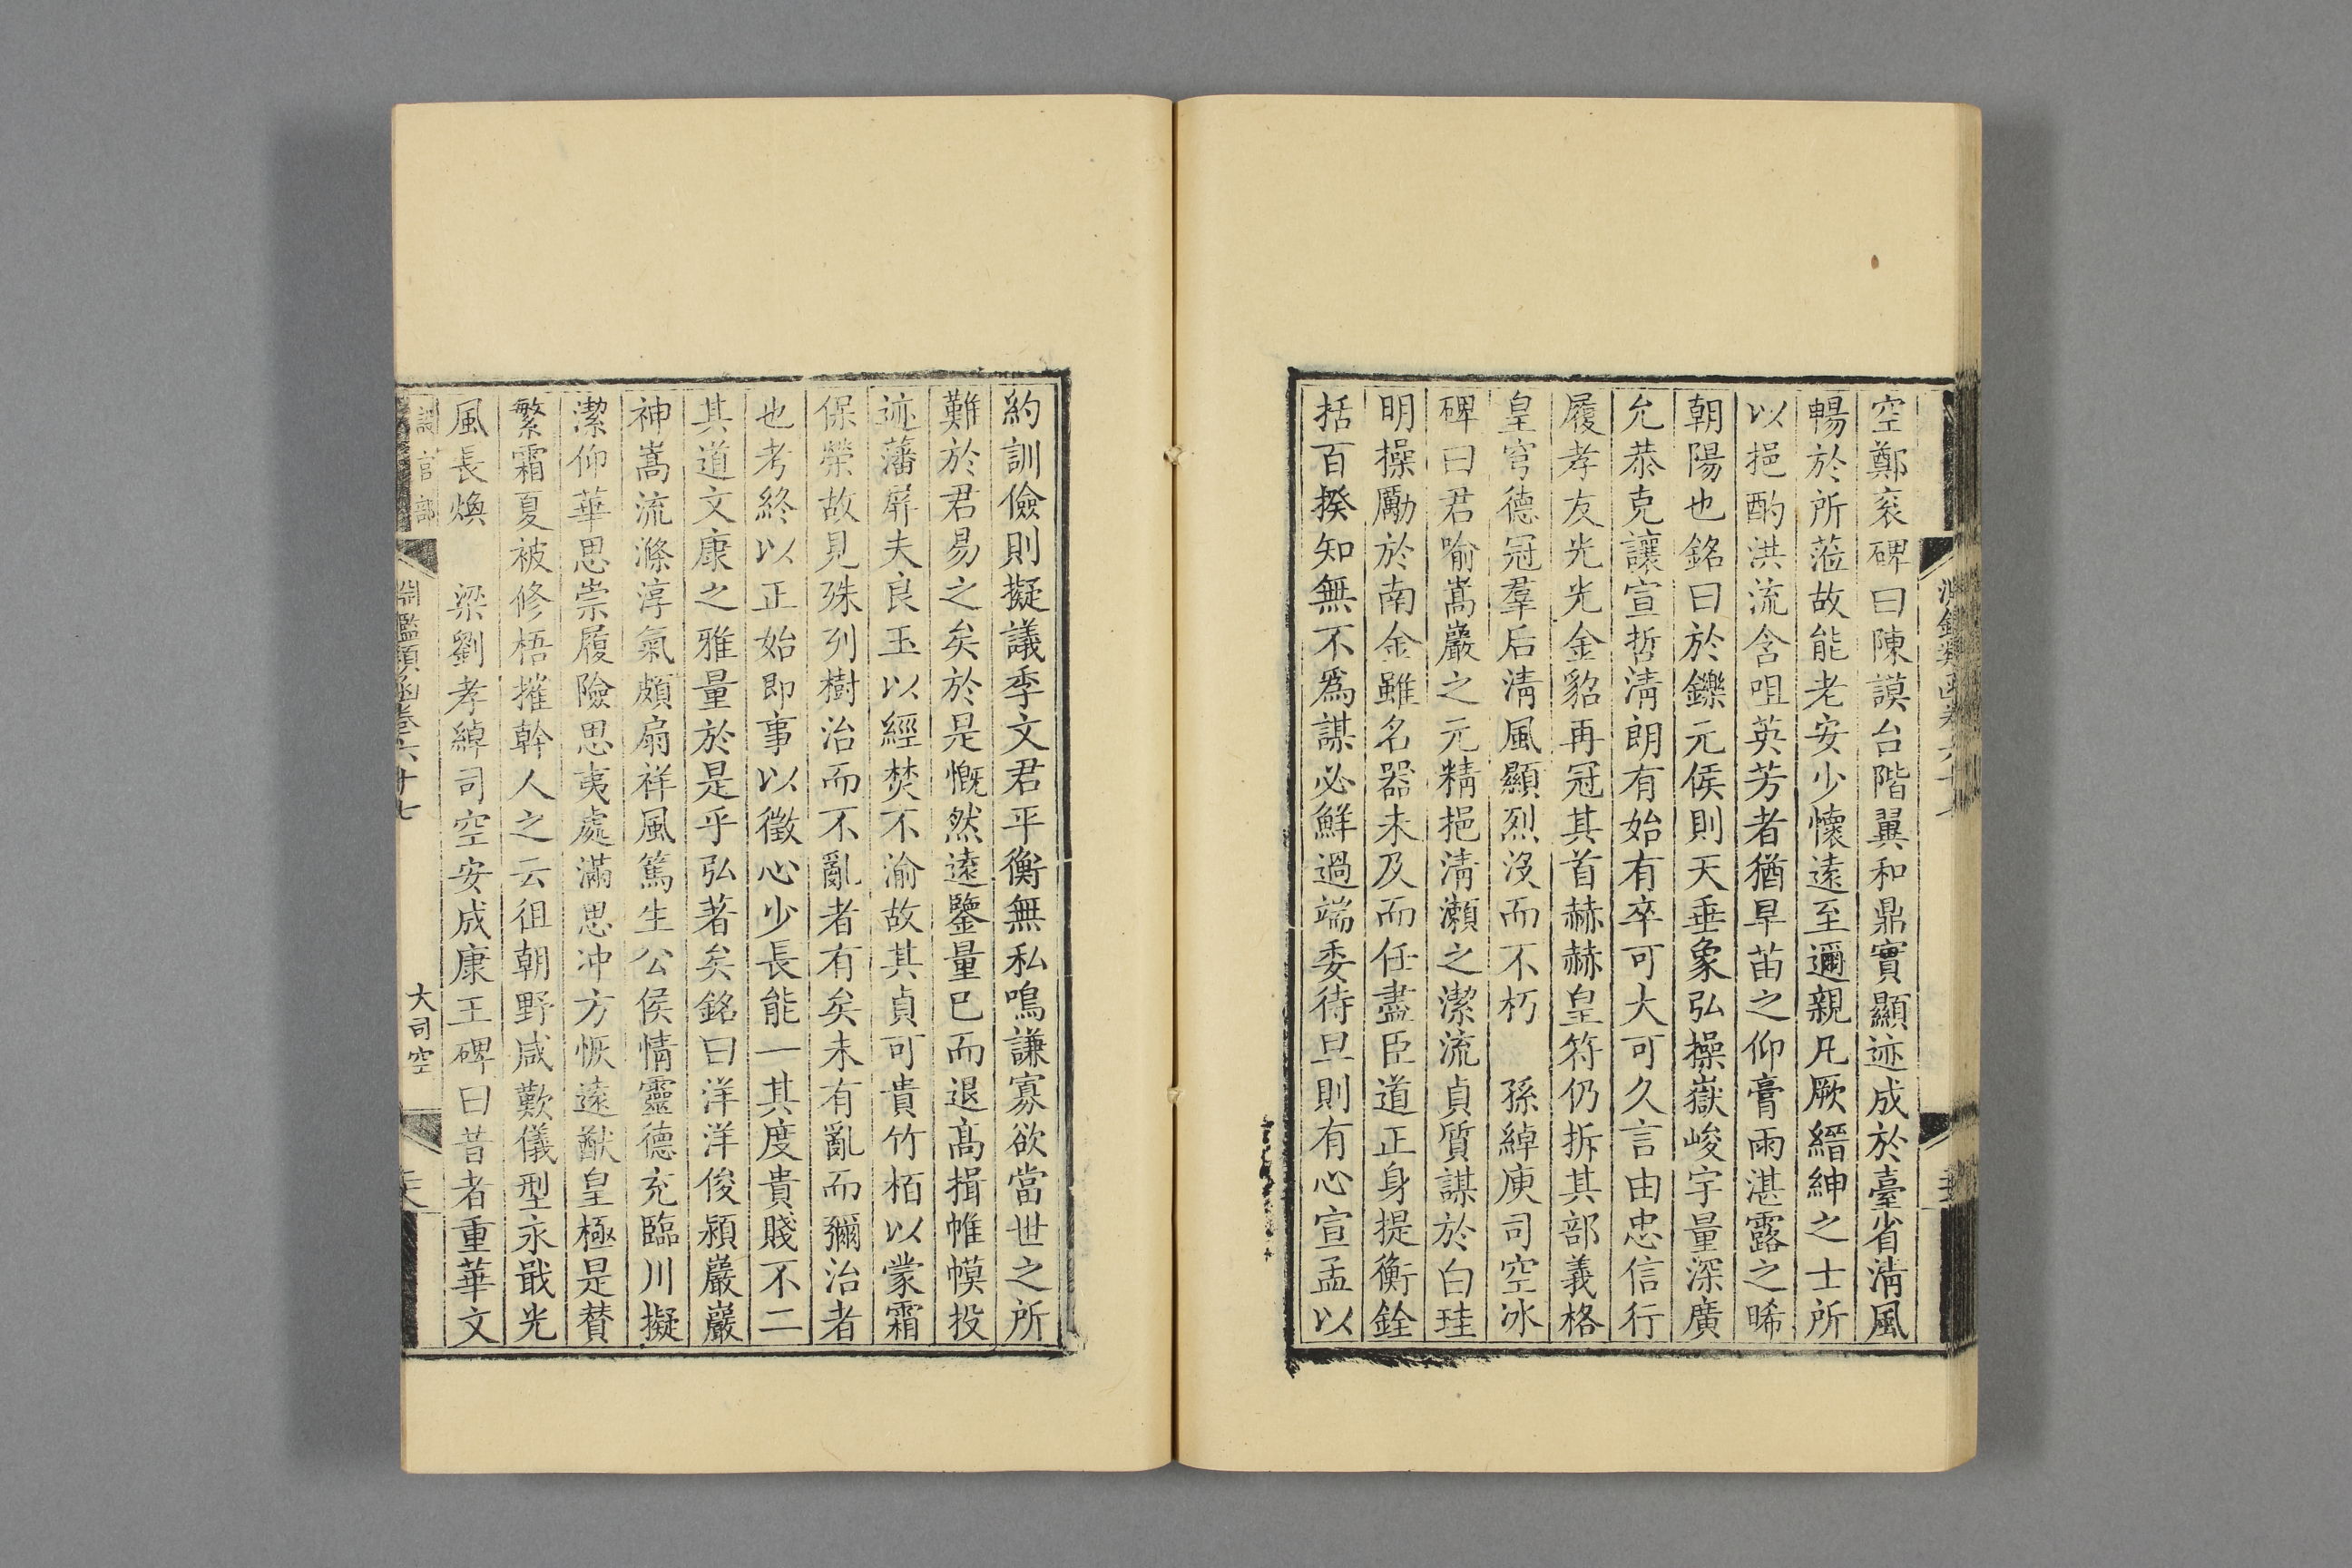 空鄭袤碑曰陳謨台階翼和鼎實顯迹成於臺省清風
暢於所蒞故能老安少懷遠至邇親凡厥縉紳之士所
以挹酌洪流含咀英芳者猶旱苗之仰膏雨湛露之晞
朝陽也銘曰於鑠元侯則天垂象弘操嶽峻宇量深廣
允恭克讓宣哲清朗有始有卒可大可久言由忠信行
履孝友光光金貂再冠其首赫赫皇符仍拆其部義格
皇穹德冠羣后清風顯烈没而不朽 孫綽庾司空冰
碑曰君喻嵩巖之元精挹清瀨之潔流貞質謀於白珪
明操勵於南金雖名器未及而任盡臣道正身提衡銓
括百揆知無不爲謀必鮮過端委待旦則有心宣孟以
約訓儉則擬議季文君平衡無私鳴謙寡欲當世之所
難於君易之矣於是慨然遠鑒量巳而退高揖帷幙投
迹藩屏夫良玉以經焚不渝故其貞可貴竹栢以蒙霜
保榮故見殊列樹治而不亂者有矣未有亂而彌治者
也考終以正始即事以徵心少長能一其度貴賤不二
其道文康之雅量於是乎弘著矣銘曰洋洋俊潁巖巖
神嵩流滌淳氣頗扇祥風篤生公侯情靈德充臨川擬
潔仰華思崇履險思夷處滿思冲方恢遠猷皇極是賛
繁霜夏被修梧摧幹人之云徂朝野咸歎儀型永戢光
風長煥 梁劉孝綽司空安成康王碑曰昔者重華文
設官部
淵鑑類函卷六十七
大司空